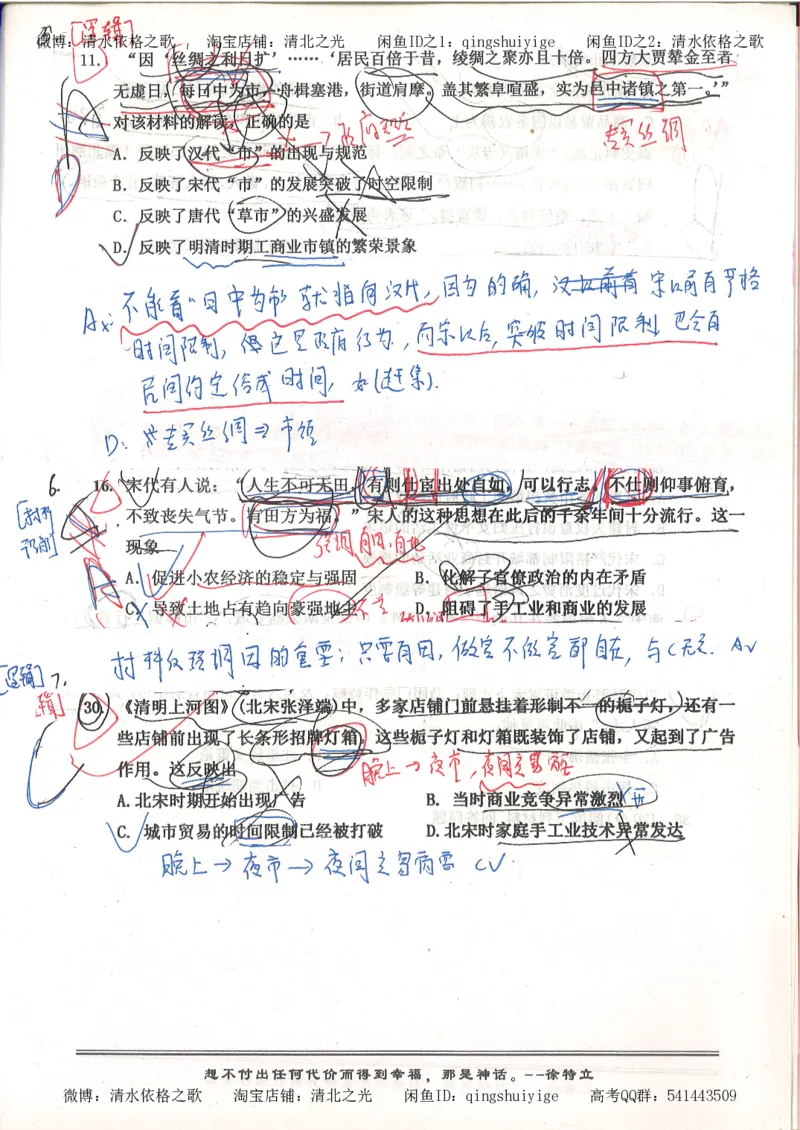 [逻辑]
微博：清水依格之歌 淘宝店铺：清北之光 闲鱼ID之1：qingshuiyige 闲鱼ID之2：清水依格之歌
11. “因‘丝绸之利日扩’……‘居民百倍于昔，绫绸之聚亦且十倍。四方大贾辇金至者
无虚日，每日中为市，舟楫塞港，街道肩摩。盖其繁阜喧盛，实为邑中诸镇之第一。’”
对该材料的解读，正确的是
卖买丝绸
A. 反映了汉代“市”的出现与规范
B. 反映了宋代“市”的发展突破了时空限制
C. 反映了唐代“草市”的兴盛发展
D. 反映了明清时期工商业市镇的繁荣景象
A×: 不能看“日中为市”就指向汉代，因为的确，宋以前有严格
时间限制，但这是政府行为，而宋以后，突破时间限制，也会有
民间约定俗成时间，如(赶集).
D. 卖买丝绸⇒市镇
6. 16. 宋代有人说：“人生不可无田，有则仕宦出处自如，可以行志。不仕则仰事俯育，
不致丧失气节。有田方为福。”宋人的这种思想在此后的千余年间十分流行。这一
现象
A. 促进小农经济的稳定与强固 B. 化解了官僚政治的内在矛盾
C. 导致土地占有趋向豪强地主 D. 阻碍了手工业和商业的发展
材料仅强调田的重要；只要有田，做官不做官都自在，与C无关. A√
[逻辑] 7.
30. 《清明上河图》(北宋张泽端)中，多家店铺门前悬挂着形制不一的栀子灯，还有一
些店铺前出现了长条形招牌灯箱，这些栀子灯和灯箱既装饰了店铺，又起到了广告
作用。这反映出
晚上→夜市，夜间交易
A. 北宋时期开始出现广告 B. 当时商业竞争异常激烈
C. 城市贸易的时间限制已经被打破 D. 北宋时家庭手工业技术异常发达
晚上→夜市→夜间交易需要 C√
想不付出任何代价而得到幸福，那是神话。--徐特立
微博：清水依格之歌 淘宝店铺：清北之光 闲鱼ID：qingshuiyige 高考QQ群：541443509